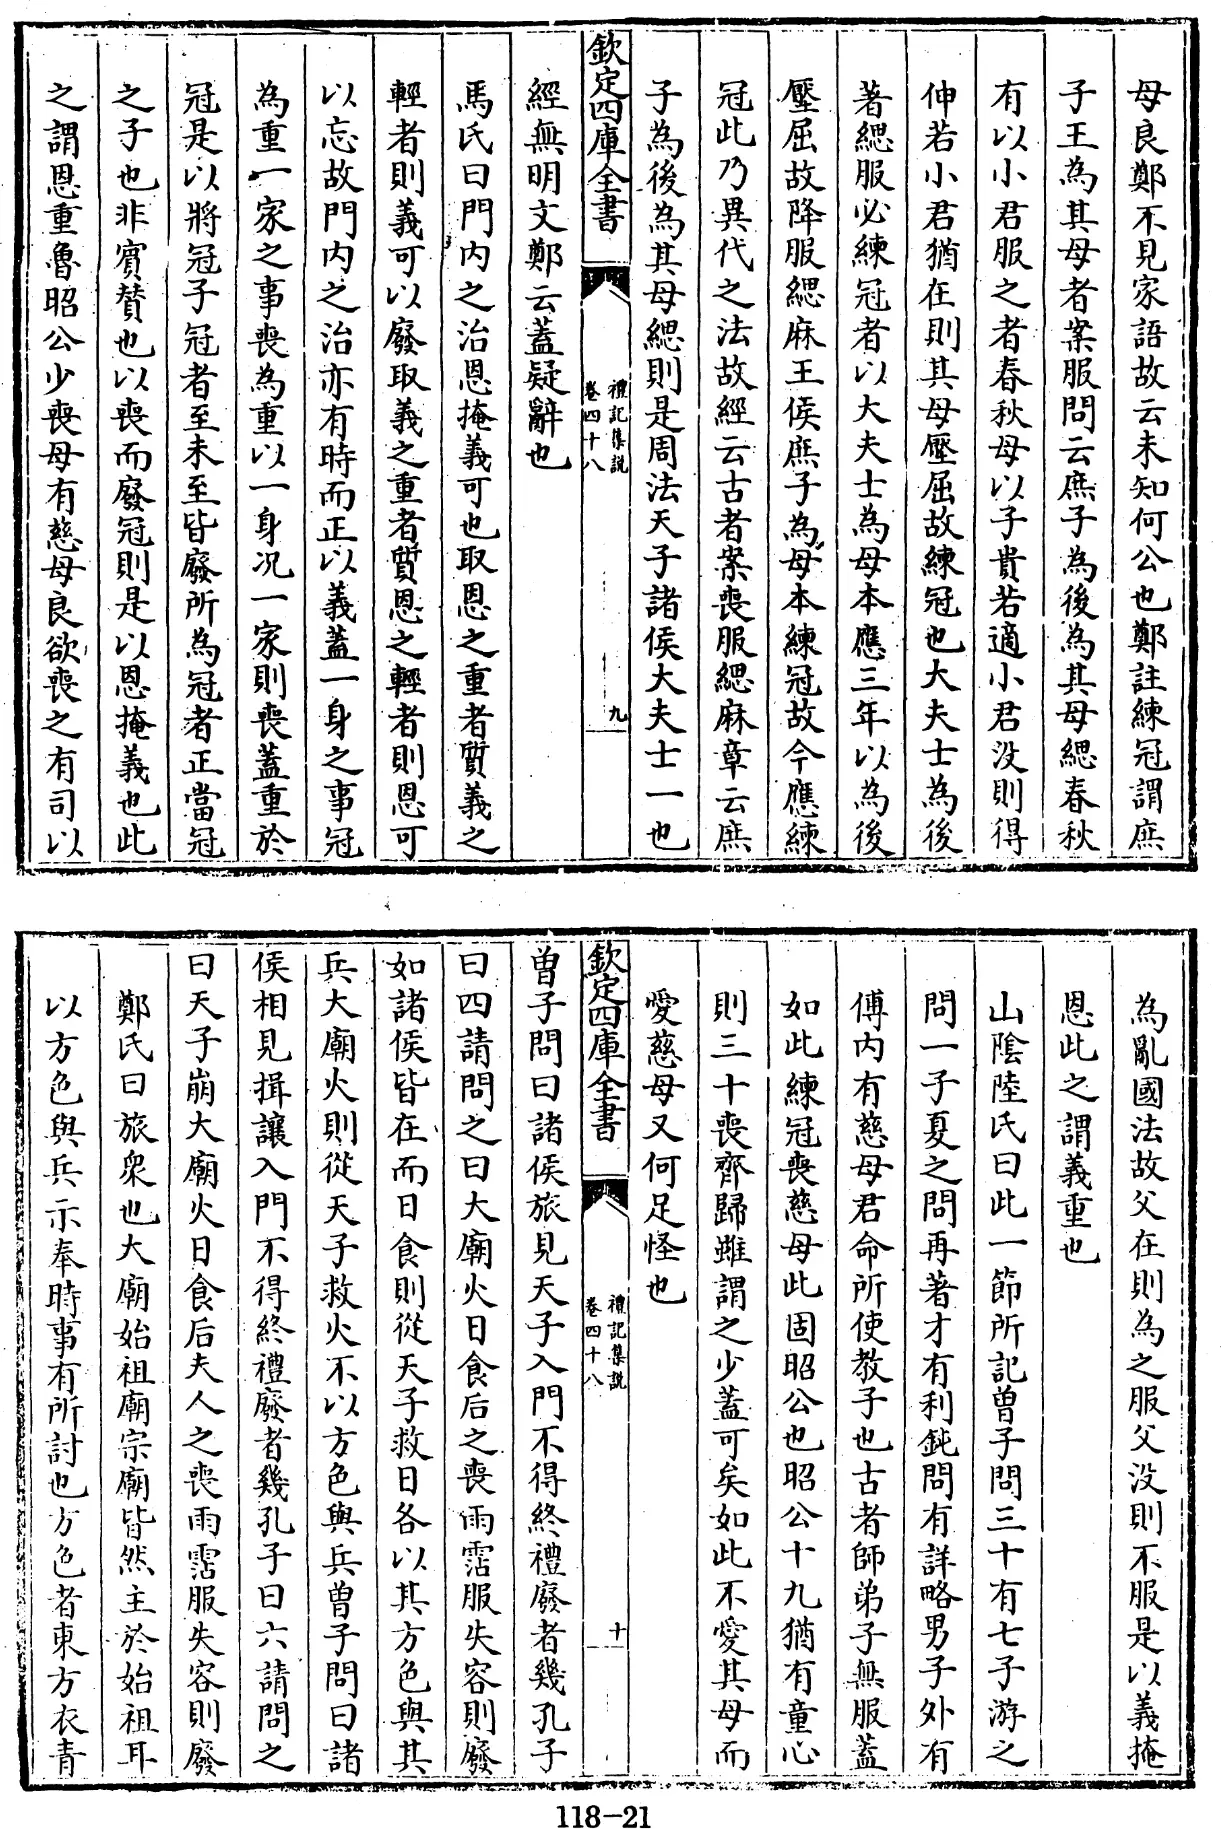 母良鄭不見家語故云未知何公也鄭註練冠謂庶
子王為其母者案服問云庶子為後為其母緦春秋
有以小君服之者春秋母以子貴若適小君没則得
伸若小君猶在則其母壓屈故練冠也大夫士為後
著緦服必練冠者以大夫士為母本應三年以為後
壓屈故降服緦麻王侯庶子為母本練冠故今應練
冠此乃異代之法故經云古者案喪服緦麻章云庶
子為後為其母緦則是周法天子諸侯大夫士一也
欽定四庫全書
禮記集説
卷四十八
九
經無明文鄭云蓋疑辭也
馬氏曰門内之治恩掩義可也取恩之重者質義之
輕者則義可以廢取義之重者質恩之輕者則恩可
以忘故門内之治亦有時而正以義蓋一身之事冠
為重一家之事喪為重以一身况一家則喪蓋重於
冠是以將冠子冠者至未至皆廢所為冠者正當冠
之子也非賓賛也以喪而廢冠則是以恩掩義也此
之謂恩重魯昭公少喪母有慈母良欲喪之有司以
為亂國法故父在則為之服父没則不服是以義掩
恩此之謂義重也
山陰陸氏曰此一節所記曾子問三十有七子游之
問一子夏之問再著才有利鈍問有詳略男子外有
傅内有慈母君命所使教子也古者師弟子無服蓋
如此練冠喪慈母此固昭公也昭公十九猶有童心
則三十喪齊歸雖謂之少蓋可矣如此不愛其母而
愛慈母又何足怪也
欽定四庫全書
禮記集説
卷四十八
十
曾子問曰諸侯旅見天子入門不得終禮廢者幾孔子
曰四請問之曰大廟火日食后之喪雨霑服失容則廢
如諸侯皆在而日食則從天子救日各以其方色與其
兵大廟火則從天子救火不以方色與兵曾子問曰諸
侯相見揖讓入門不得終禮廢者幾孔子曰六請問之
曰天子崩大廟火日食后夫人之喪雨霑服失容則廢
鄭氏曰旅衆也大廟始祖廟宗廟皆然主於始祖耳
以方色與兵示奉時事有所討也方色者東方衣青
118-21